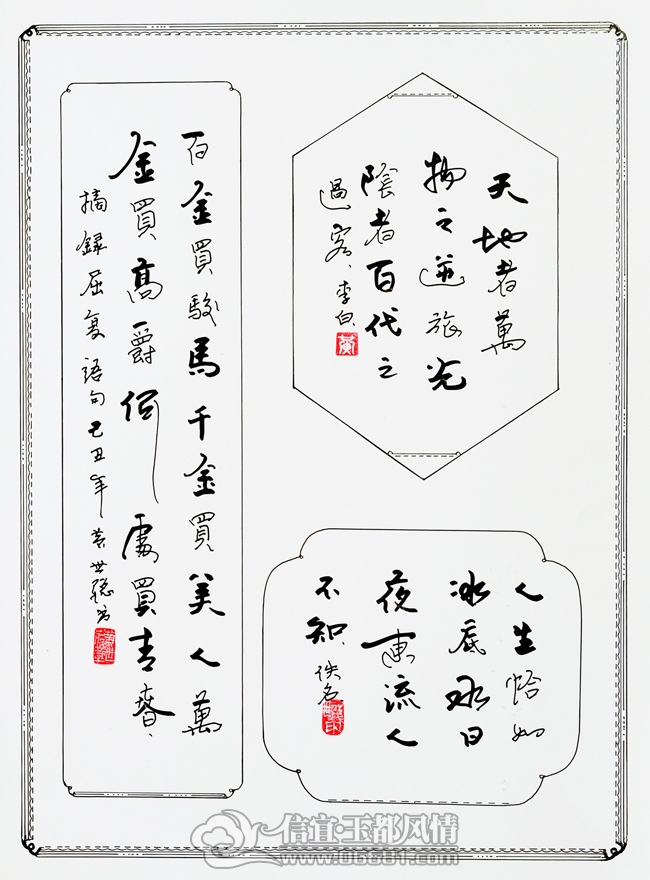 天地者萬
物之逆旅光
陰者百代之
過客、李白
百金買駿馬千金買美人萬
金買高爵何處買青春、
摘錄屈复語句己丑年黃世聰书
人生恰如
冰底水日
夜東流人
不知、佚名
信宜·玉都风情
www.06681.com